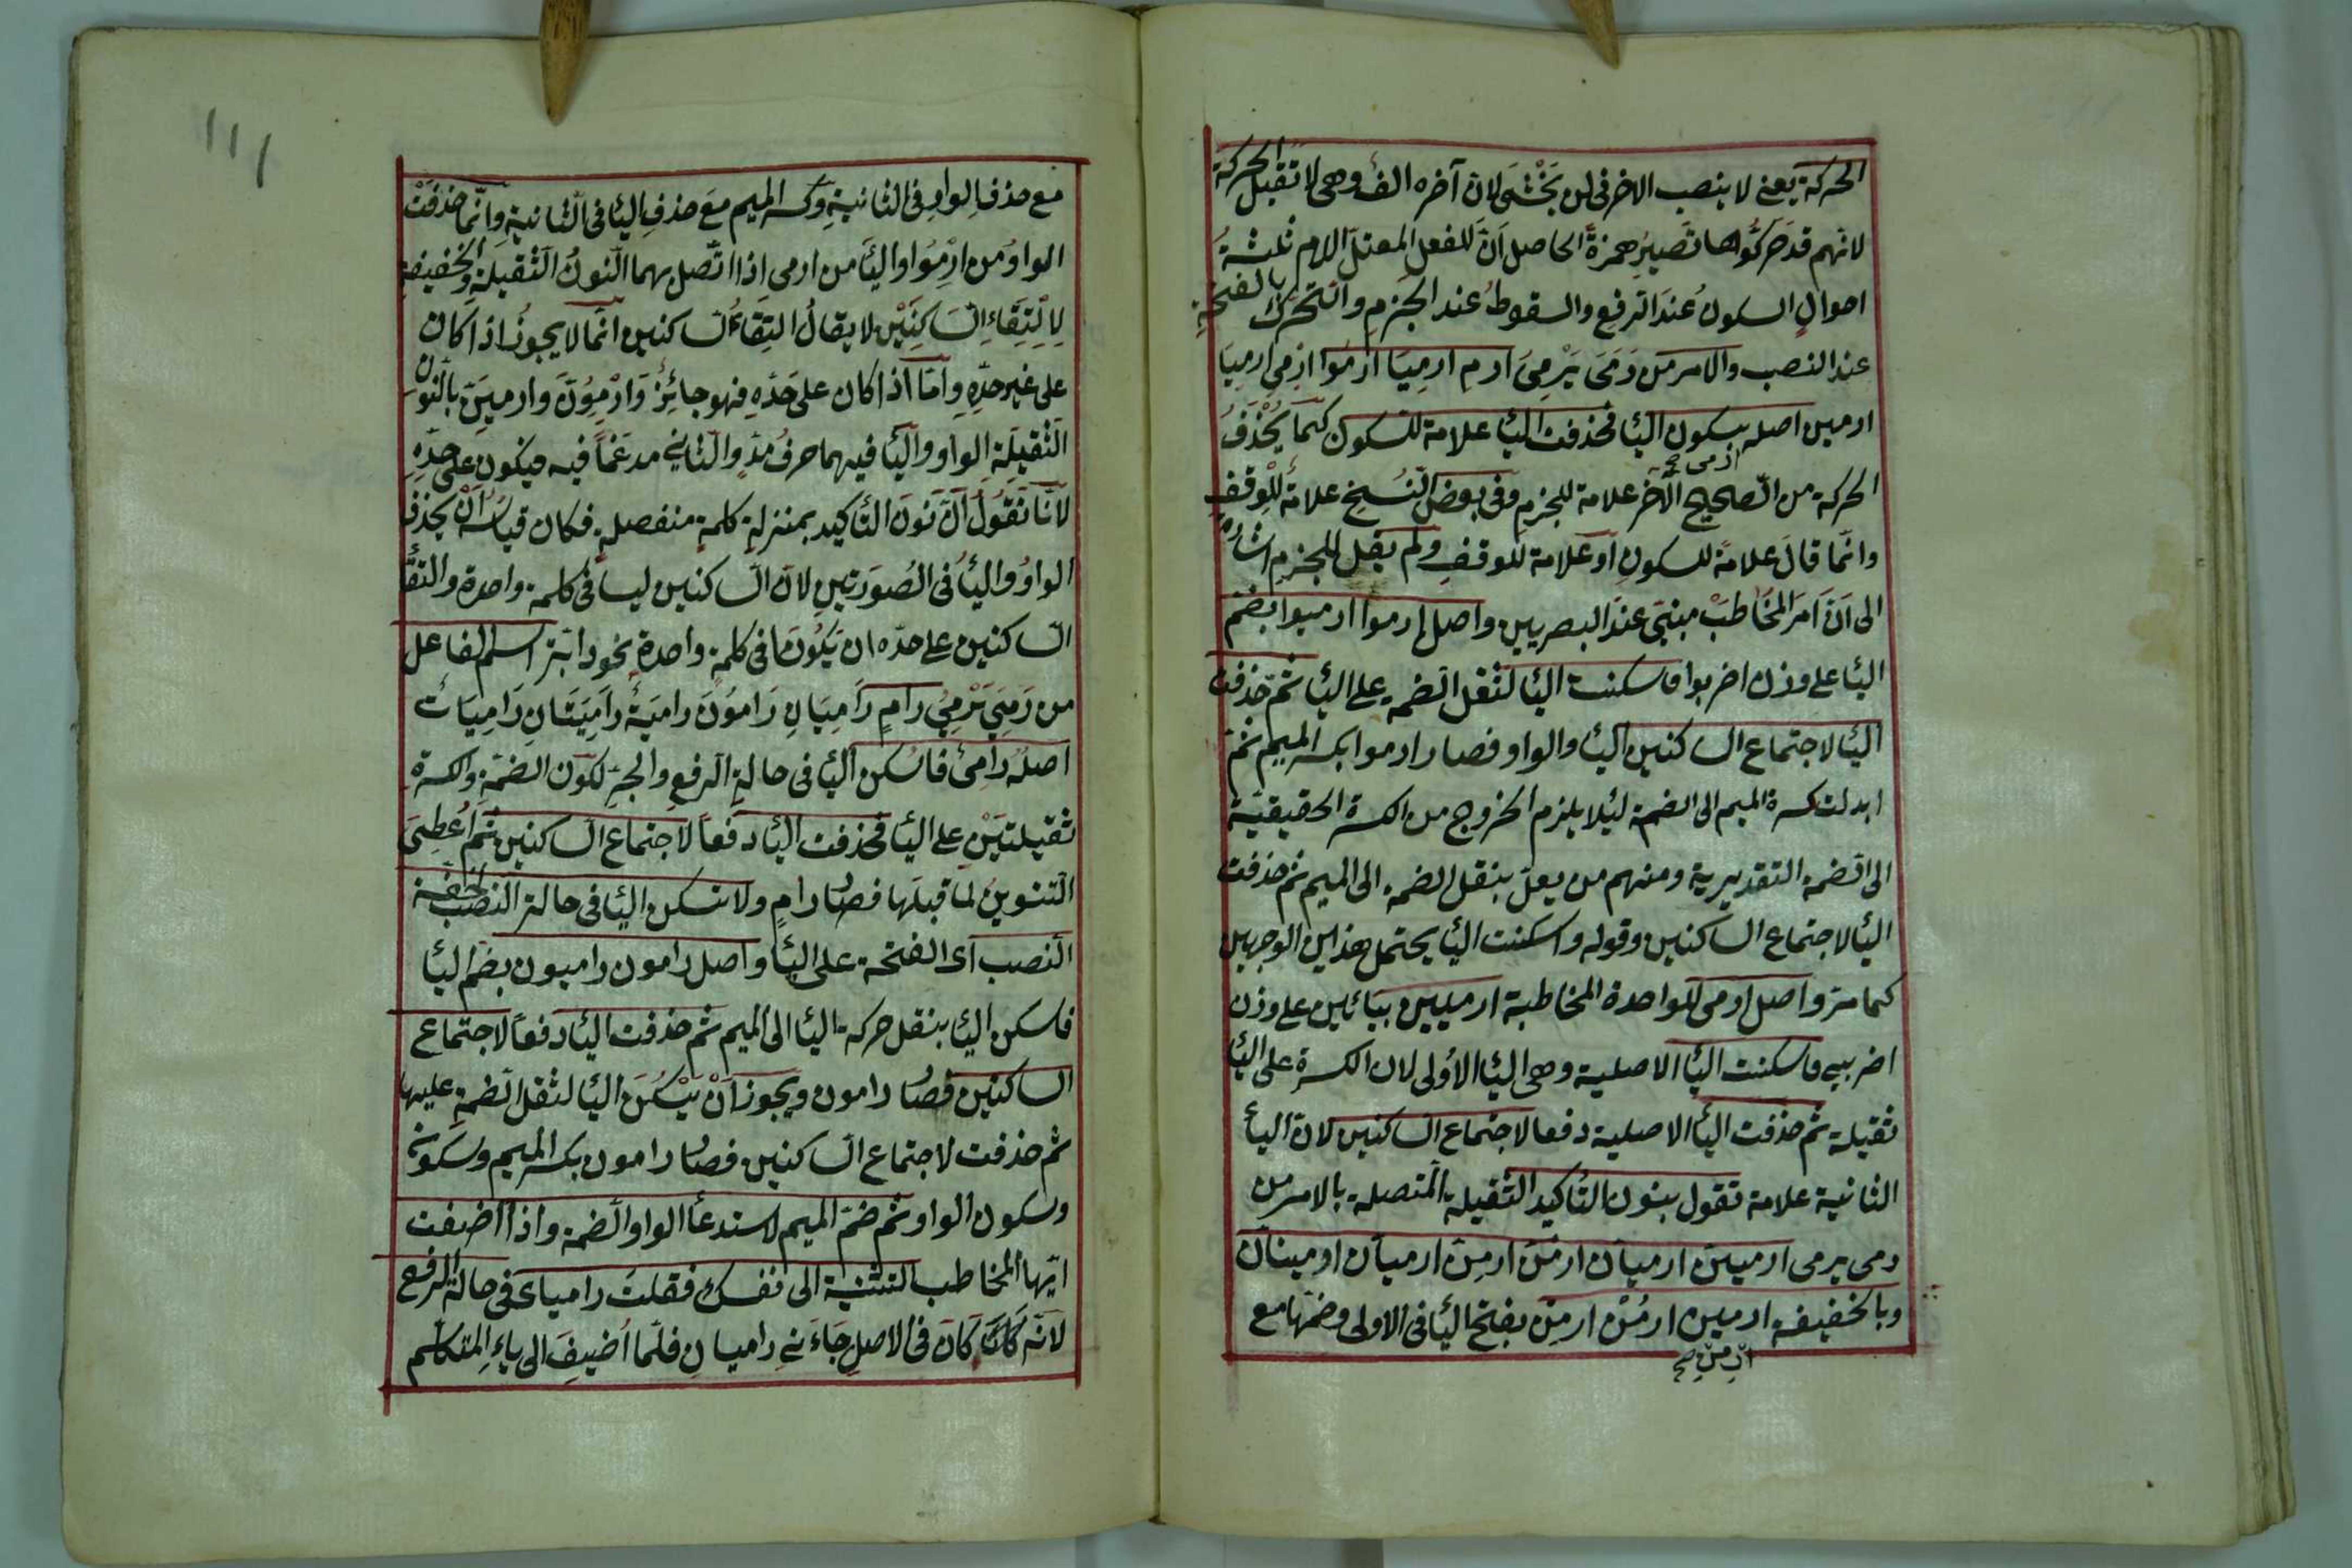 الحركة يعنى لا ينصب الاخر فى لن يَخْشَى لانّ آخره الف وهى لا تقبل الحركة
لانّهم قد حَركّوُاها تَصيرُ همزةً الحاصل اَنّ للفعل المعتلّ اللام ثلثةُ
احوالٍ السكونُ عندَ الرفع والسقوطُ عند الجَزمِ والتحرّك بالفتحةِ
عند النصب والامر من رَمَى يَرْمِىَ ارمِ ارمِيَا ارمُوا ارمِى ارمِيَا
ارمين اصله بسكون الئا فحذفت الئا علامة للسكون كمَا يُحْذَفُ
ارمى صح
الحركة من الصّحيح الآخر علامة للجزمِ وفى بعض النّسخ علامة للوقفِ
وانّما قالَ علامةً للسكونِ اَوعَلامة للوقفِ ولم يقل للجزم اشارة
الى اَنّ اَمرَ المخَاطَبْ مبنىّ عندَ البصريين واصل ارموا ارميوا بضمّ
الئا على وزن اضربوا فاسكنت الئا لثقل الضمة على الئا ثمّ حذفت
الئا لاجتماع الساكنين الئا والواو فصار ارموا بكسر الميم ثمّ
ابدلت كسرة الميم الى الضمة لئلا يلزم الخروج من الكسرة الحقيقيّة
الى الضمة التقديرية ومنهم من يعلّ بنقل الضمة الى الميم ثم حذفت
الئا لاجتماع الساكنين وقوله واسكنت الئا يحتمل هذين الوجهين
كما مرّ واصل ارمى للواحدة المخاطبة ارميين بيائين على وزن
اضربى فاسكنت الئا الاصلية وهى الئا الأولى لان الكسرة على الئا
ثقيلة ثم حذفت الئا الاصلية دفعا لاجتماع الساكنين لانّ الئا
الثانية علامة تقول بنون التٔاكيد الثّقيلة المتصلة بالامر من
رمى يرمى ارمينّ ارميانّ ارمنّ ارمِنّ ارميانّ ارمينانّ
وبالخفيفة ارمين ارمُنْ ارمِنْ بفتح الئا فى الاولى وضمّها مع
ارمنّ صح
١١١
مع حذفِ الواوِ فى الثانيةِ وكسر الميم معَ حذفِ الئا فى الثّانية وانّما حذفَتْ
الواوُ من ارْمُوا والئا من ارمى اذا اتّصل بهما النّونُ الثّقيلة والخفيفة
لِالْتِقَاءِ السَاكِنَيْنِ لا يقالُ التِقَاءُ الساكنين انّما لا يجوزُ اذا كان
على غيرِ حدّهِ وامّا اذا كان على حَدّهِ فهو جائِزٌ وَارْمِوُنّ وارمينّ بالنّون
الثّقيلَةِ الواو والئا فيهما حرفُ مدٍّ والثّاني مدغَماً فيه فيكون على حدّهِ
لانّا نَقُولُ انّ نُونَ التٔاكيد بمنزلة كلمةٍ منفصلةٍ فكان قياسُه اَنْ يحذف
الواوُ والئاُ فى الصُورَتينِ لانّ الساكنين ليسا فى كلمة واحدة والتقٔا
الساكنين على حدّه ان يَكُونَا فى كلمةٍ واحدةٍ نحو دابّةٍ اسم الفاعل
من رَمَىَ يَرْمِىُ رامٍ رَامِيَانِ رَامُونَ رامِيَةٌ رامِيَتَانِ رَامِيَاتٌ
اصلُه رامىٌ فاسُكن الئا فى حالةِ الرفعِ والجرّ لكون الضمّةِ والكسرةِ
ثقيلتَيْنِ على الئا فحذفت الئا دفعاً لاجتماع الساكنين ثم اُعطِىَ
التنوينُ لما قبلَها فصٔار رامٍ ولا تسكن الئا فى حالة النصب لخفّة
النصب اى الفتحة على الئا واصل رامون راميون بضمّ الئا
فاسكن الئا بنقل حركة الئا الى الميم ثم حذفت الئا دفعاً لاجتماع
الساكنين فصٔار رامون ويجوز اَنْ يَسْكُنَ الئا لثقل الضمّةِ عليها
ثم حذفت لاجتماع الساكنين فصٔار رامون بكسر الميم وسكون
وسكون الواو ثم ضمّ الميم لاستدعٔا الواو الضمة واذا اضفت
ايّها المخاطب التثنية الى نفسك فقلتَ رامياىَ فى حالة الرفع
لانّه كَانَ كَانَ فى الاصلِ جَاءَنِى راميانِ فلمّا اُضيفَ الى ياءِ المتكلّم